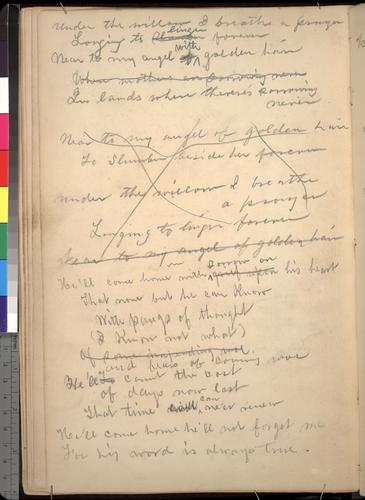 under the willow I breathe a prayer
Longing to slumber linger forever
Near to my angel of with golden hair
Where mothers are sorrowing never
In lands where there's sorrowing
never
Near to my angel of golden hair
To Slumber beside her forever
under the willow I breathe
a prayer
Longing to linger forever
Near to my angel of golden hair
He'll come home with sorrow on his heart
That none but he can Know
With pangs of thought
(I Know not what)
Of some impending woe.
and fears of coming woe
He'll count the cost
of days now lost
That time can never renew
He'll come home he'll not forget me
For his word is always true.